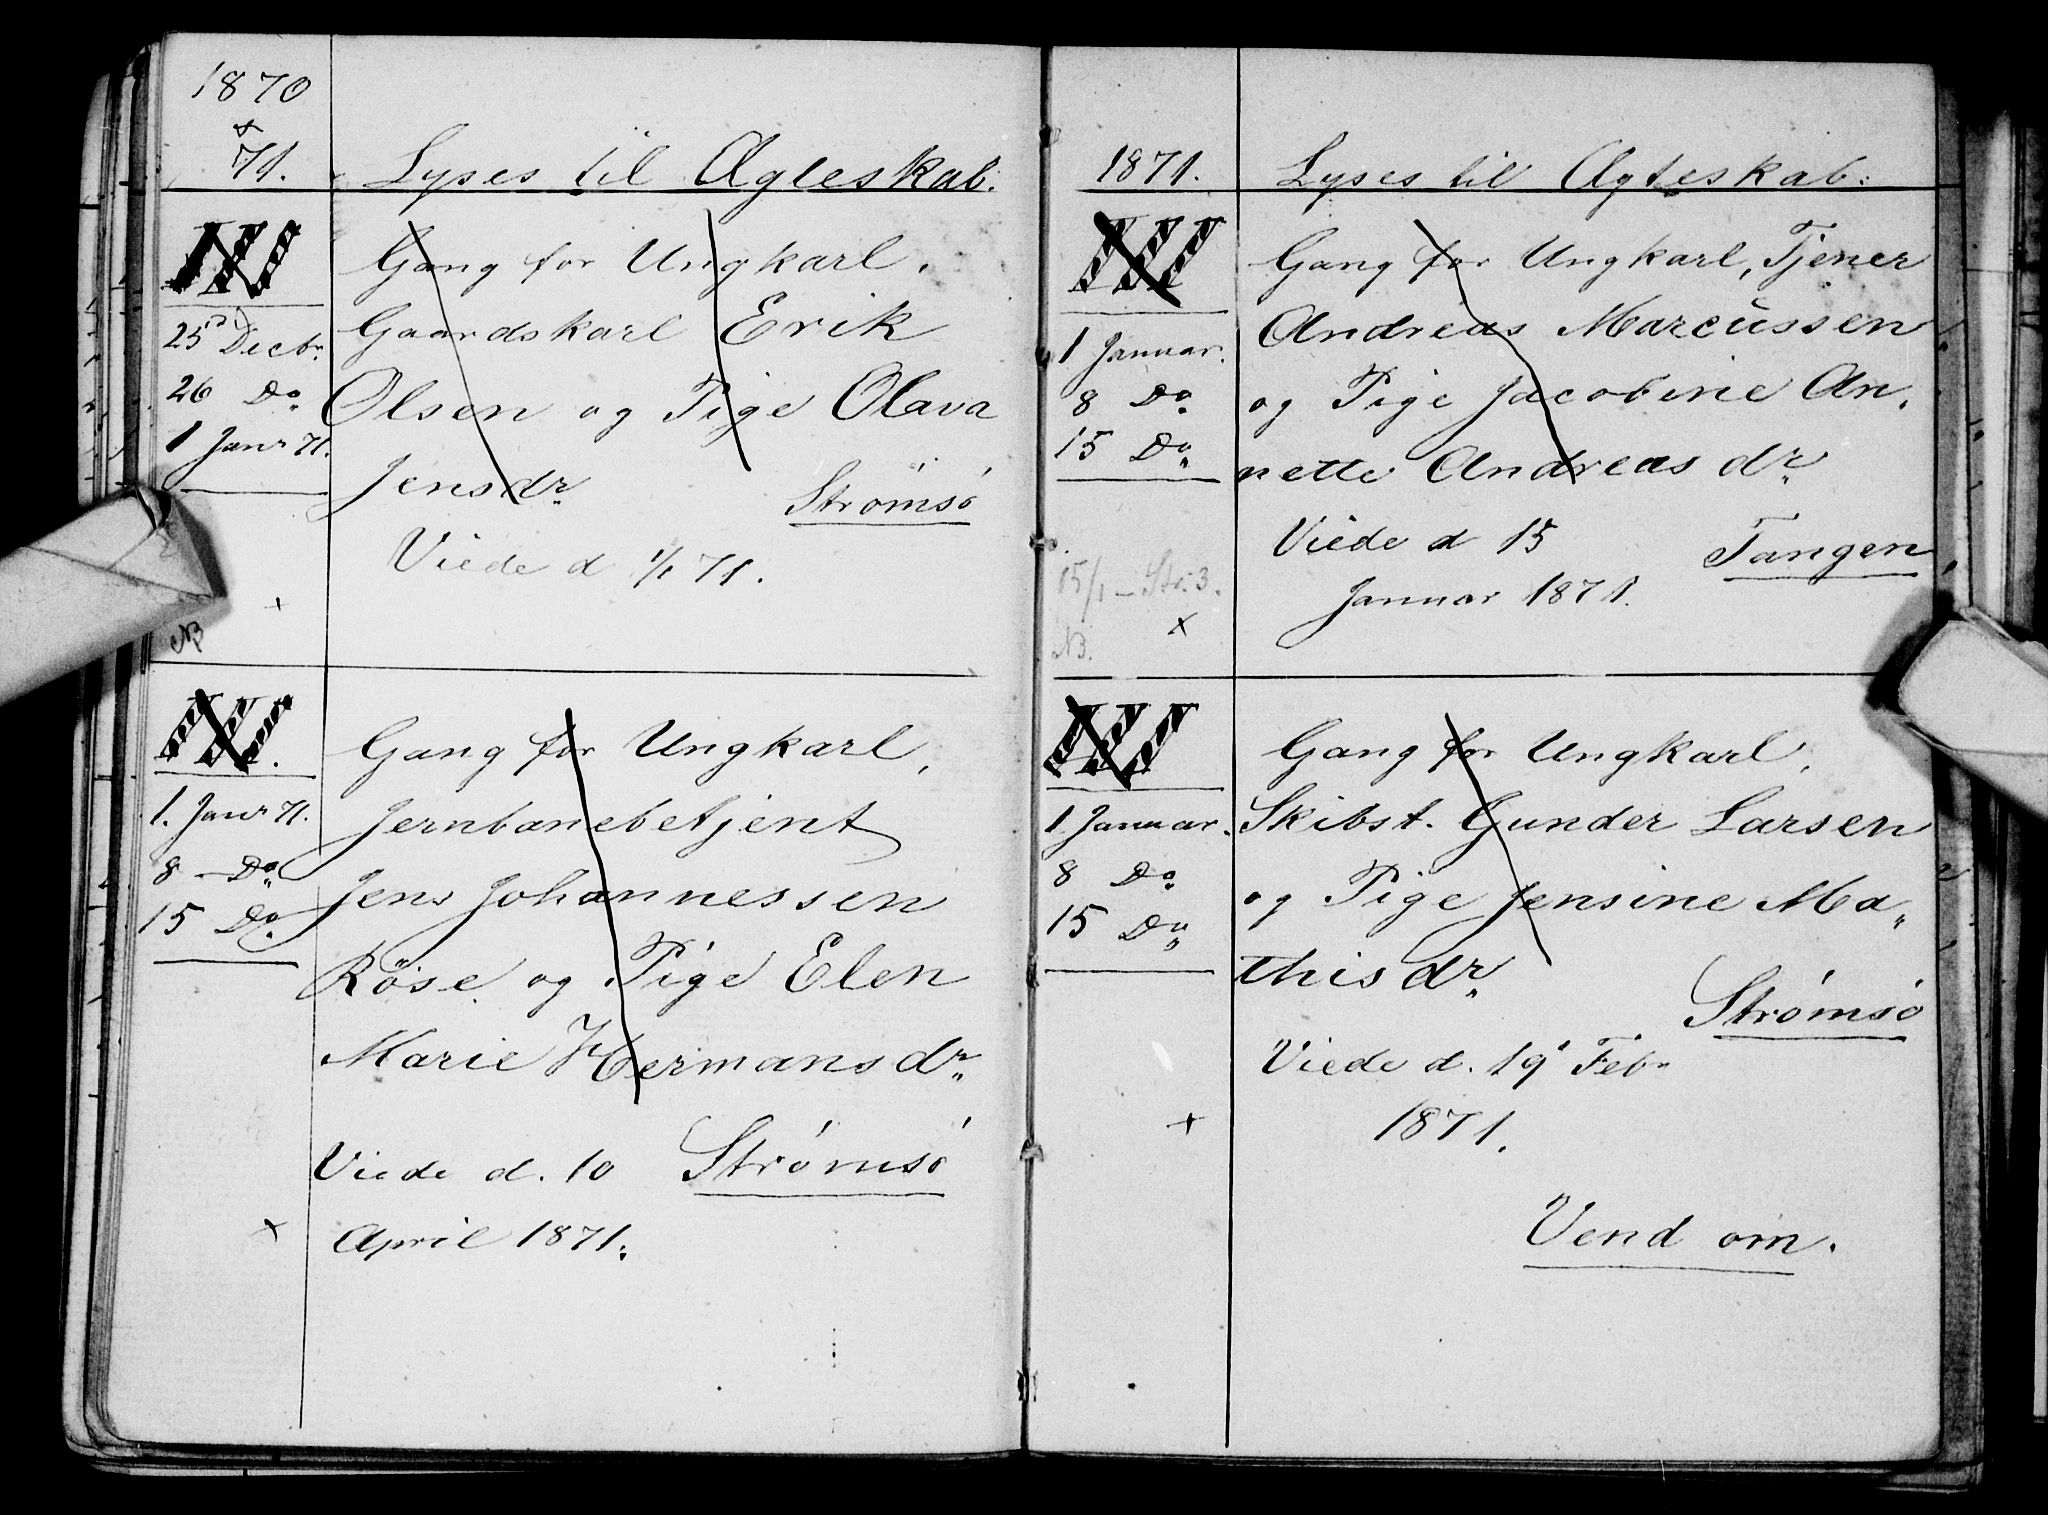 1870
71.
Lyses til Ægteskab.
III
Gang for Ungkarl,
25 Decbr.
Gaardskarl Erik
26 Do
Olsen og Pige Olava
1 Janr 71.
Jensdr.
Strømsø
Viede d 1/1 71.
x
NB
III.
Gang for Ungkarl,
1. Janr 71.
Jernbanebetjent
8 - Do
Jens Johannessen
15 Do
Röise og Pige Elen
Marie Hermansdr.
Viede d. 10 Strømsø
x April 1871.
1871.
Lyses til Ægteskab:
III
Gang for Ungkarl, Tjener
Andreas Marcussen
1 Januar.
og Pige Jacobine An,
8 Do
15 Do
nette Andreasdr.
Viede d 15
Tangen
15/1 - Str. 3.
Januar 1871.
x
NB.
III
Gang for Ungkarl,
1 Januar.
Skibst. Gunder Larsen
8 Do
og Pige Jensine Ma„
15 Do
thisdr.
Strømsø
Viede d. 19 Febr
x 1871.
Vend om.